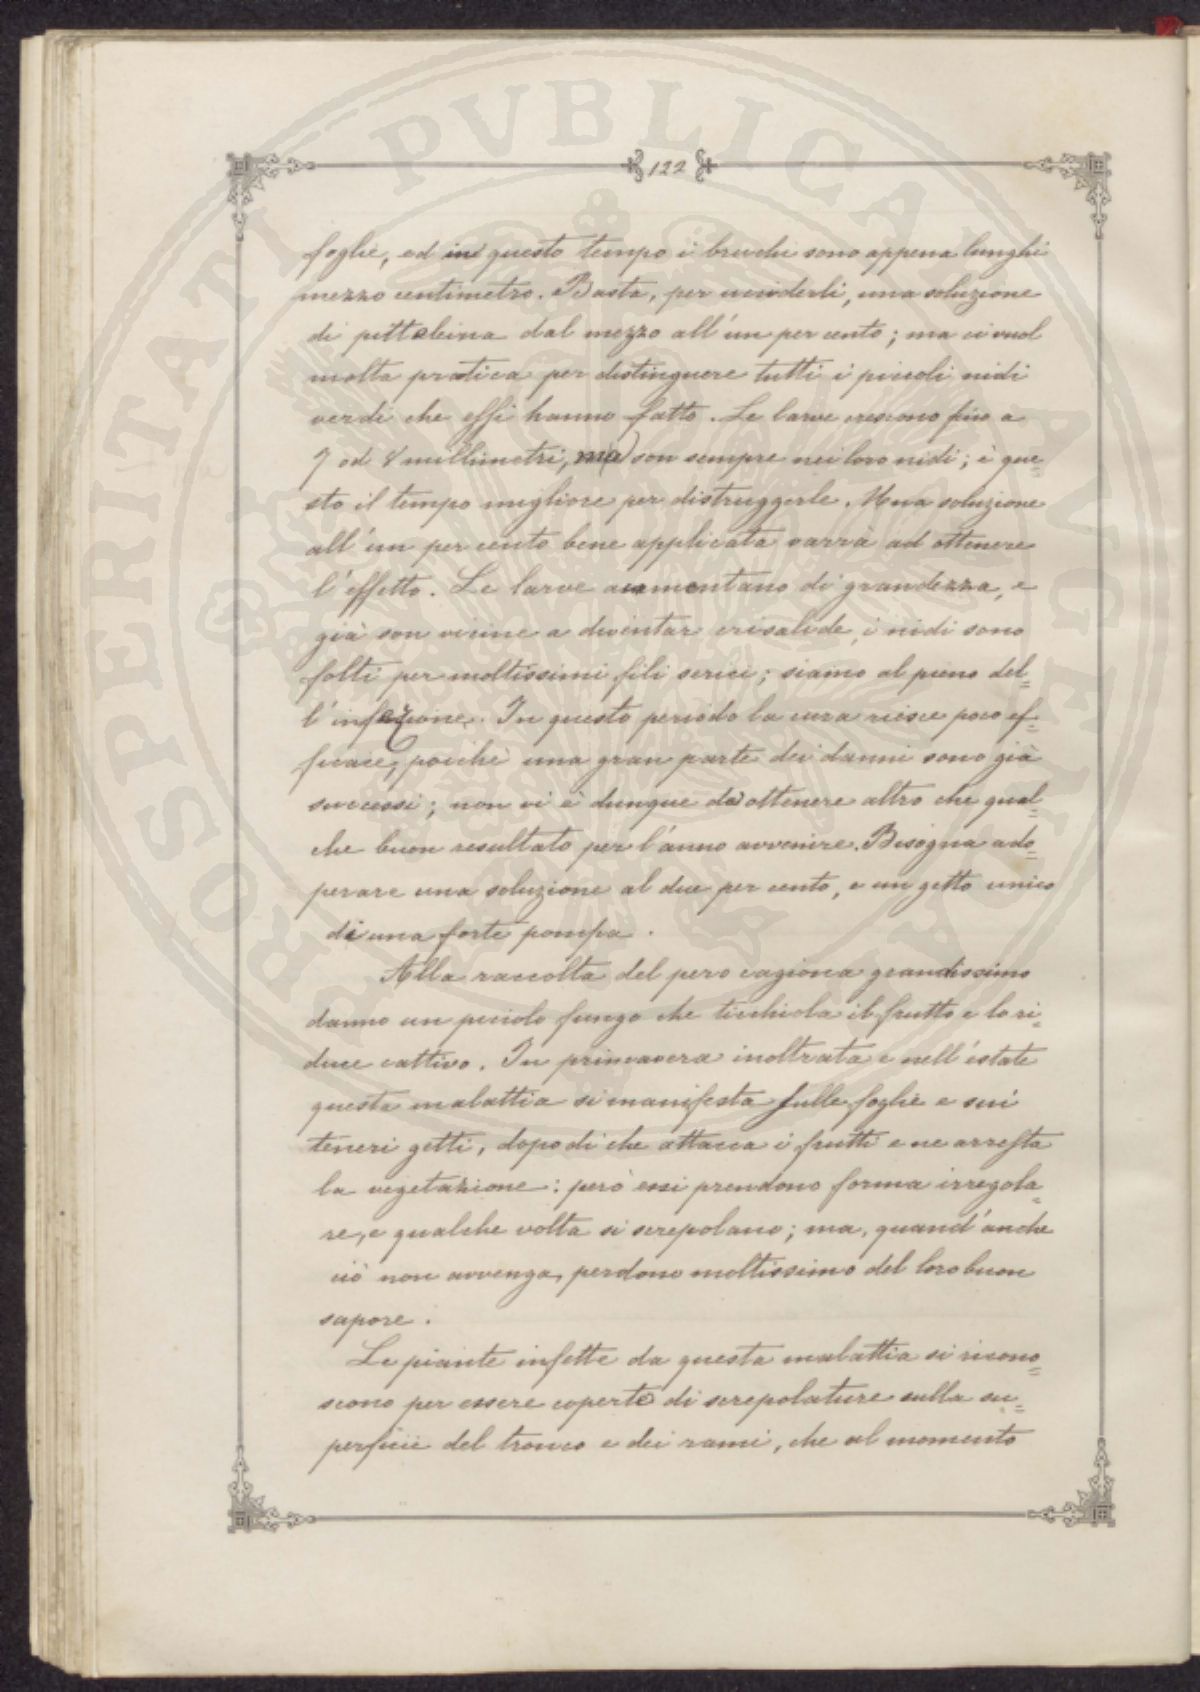 122
foglie, ed in questo tempo i bruchi sono appena lunghi
mezzo centimetro. Basta, per ucciderli, una soluzione
di pitteleina dal mezzo all'un per cento; ma ci vuol
molta pratica per distinguere tutti i piccoli nidi
verdi che essi hanno fatto. Le larve crescono fino a
7 od 8 millimetri, ma son sempre nei loro nidi; è que=
sto il tempo migliore per distruggerle. Una soluzione
all'un per cento bene applicata varrà ad ottenere
l'effetto. Le larve aumentano di grandezza, e
già son vicine a diventar crisalide, i nidi sono
folti per moltissimi fili serici; siamo al pieno del=
l'infezione. In questo periodo la cura riesce poco ef=
ficace, poichè una gran parte dei danni sono già
successi; non vi è dunque da ottenere altro che qual=
che buon resultato per l'anno avvenire. Bisogna ado=
perare una soluzione al due per cento, e un getto unico
di una forte pompa.
Alla raccolta del pero cagiona grandissimo
danno un piccolo fungo che ticchiola il frutto e lo ri=
duce cattivo. In primavera inoltrata e nell'estate
questa malattia si manifesta sulle foglie e sui
teneri getti, dopodi che attacca i frutti e ne arresta
la vegetazione: però essi prendono forma irregola=
re, e qualche volta si screpolano; ma, quand'anche
ciò non avvenga, perdono moltissimo del loro buon
sapore.
Le piante infette da questa malattia si ricono=
scono per essere coperte di screpolature sulla su=
perficie del tronco e dei rami, che al momento
PROSPERITATI PVBLICAE AVGENDAE